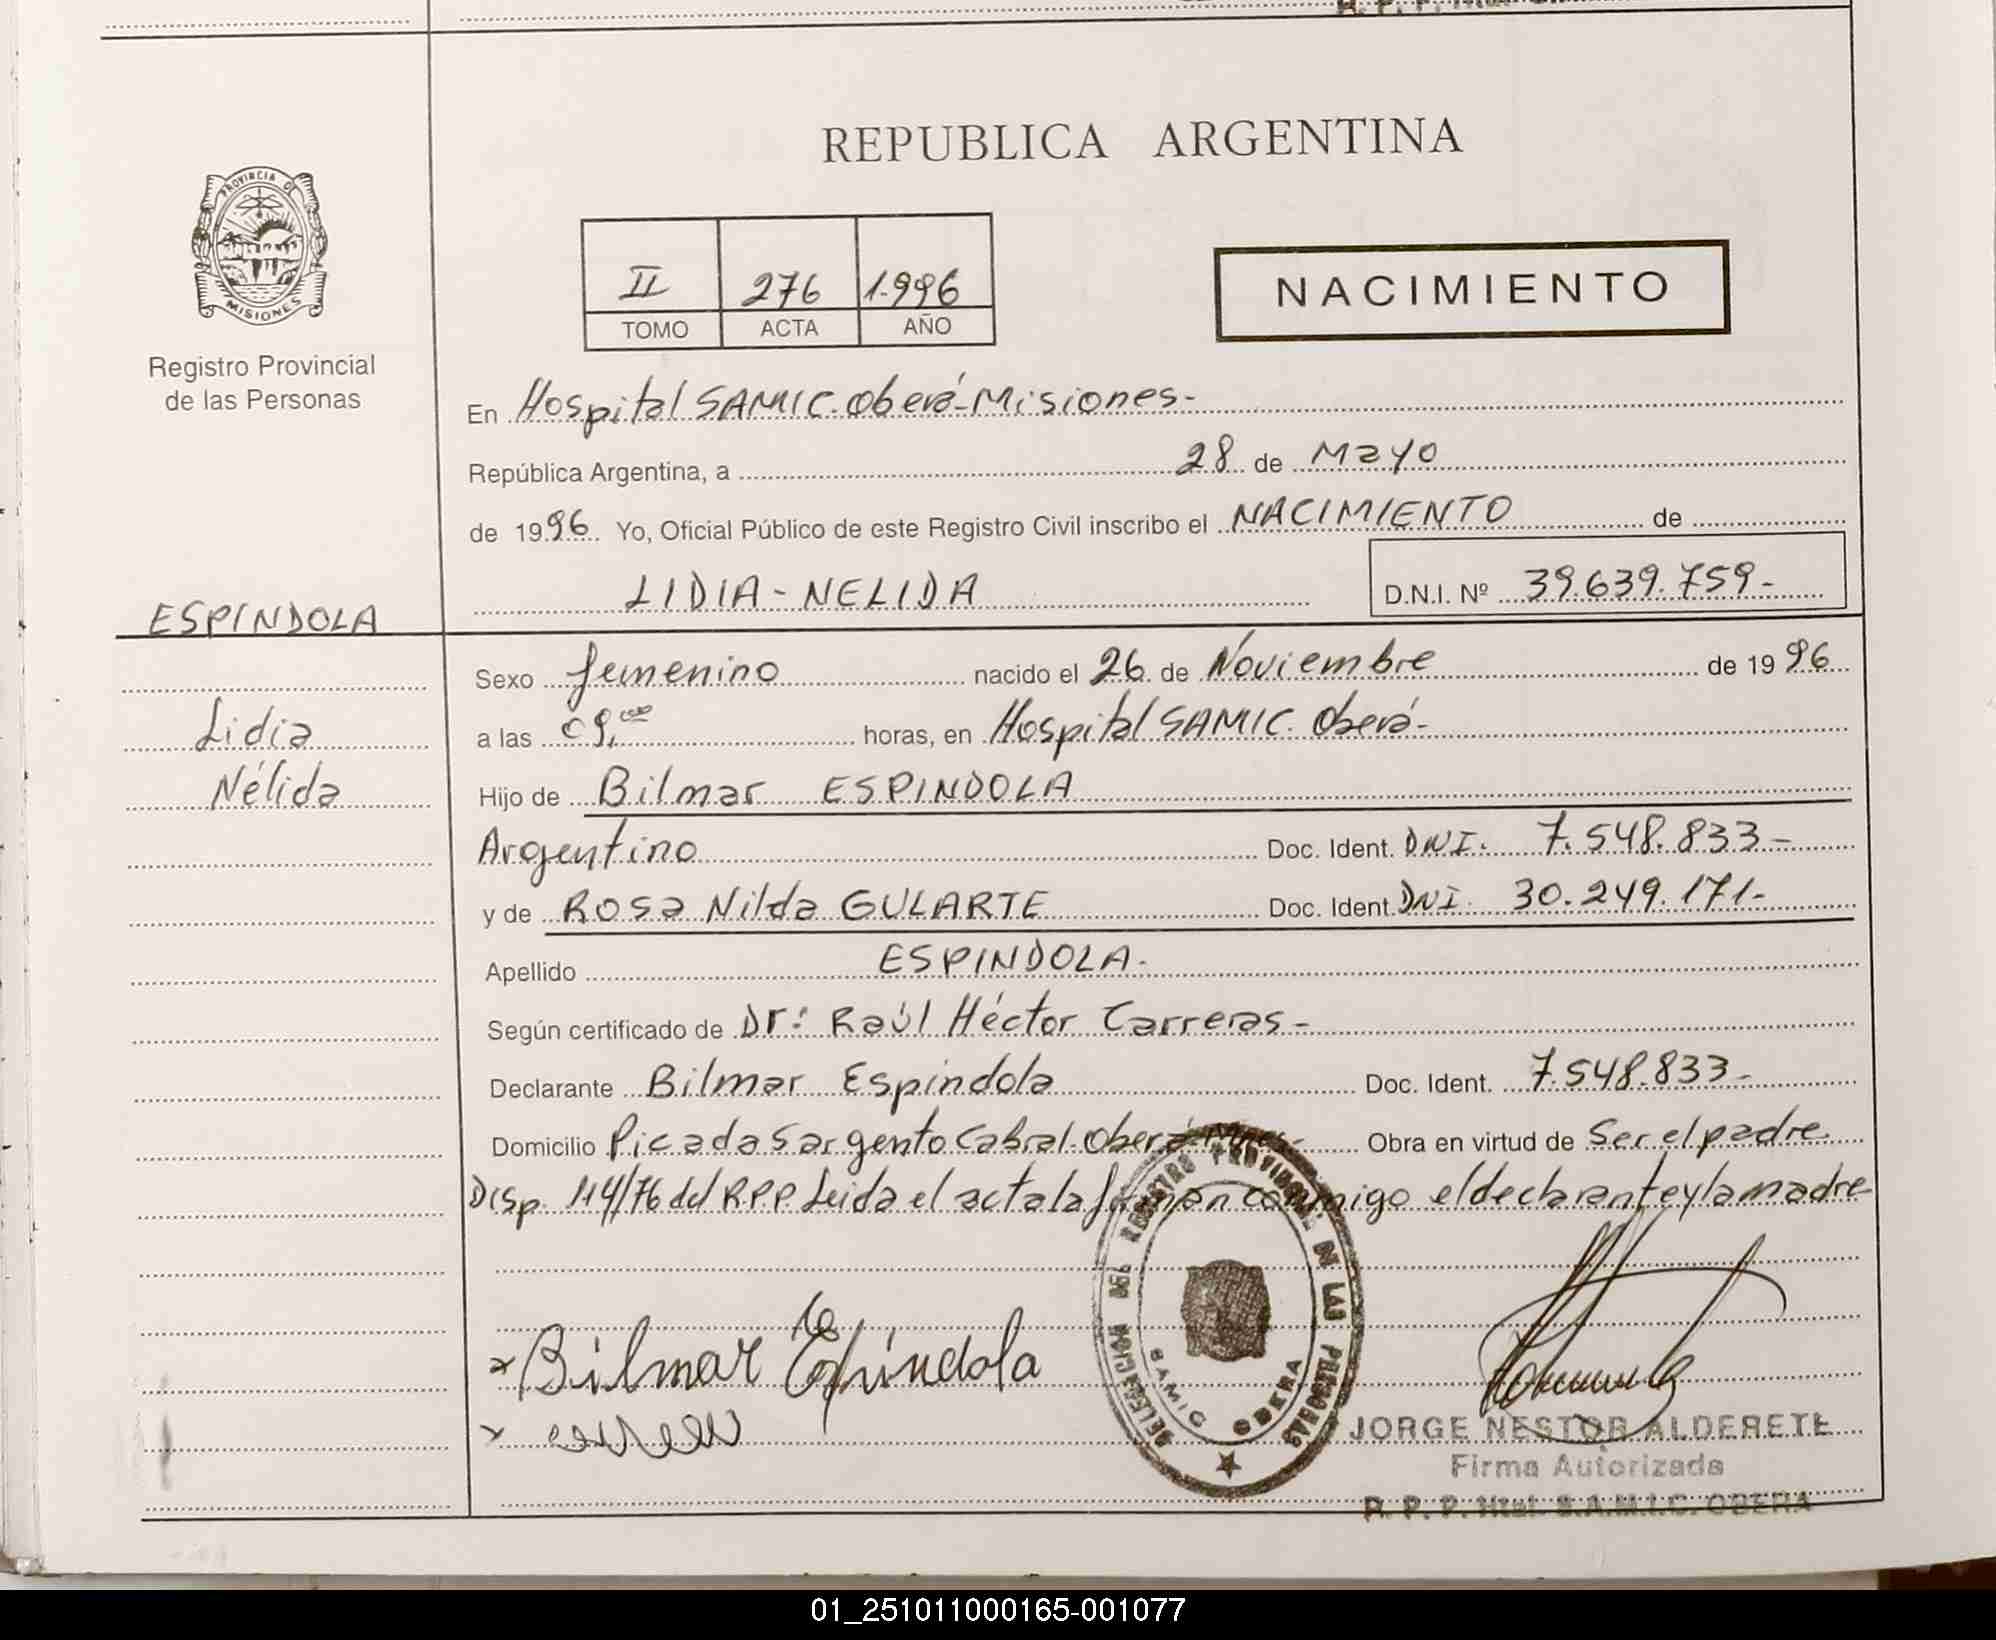 REPUBLICA ARGENTINA
PROVINCIA DE
MISIONES
Registro Provincial
de las Personas
II 276 1.996
TOMO ACTA AÑO
NACIMIENTO
En Hospital SAMIC. Oberá-Misiones-
República Argentina, a 28 de Mayo
de 1996 Yo, Oficial Público de este Registro Civil inscribo el NACIMIENTO de
LIDIA-NELIDA D.N.I. Nº 39.639.759-
ESPINDOLA
Lidia
Nélida
Sexo femenino nacido el 26 de Noviembre de 1996
a las 09,00 horas, en Hospital SAMIC. Oberá-
Hijo de Bilmar ESPINDOLA
Argentino Doc. Ident. DNI. 7.548.833-
y de Rosa Nilda GULARTE Doc. Ident. DNI. 30.249.171-
Apellido ESPINDOLA.
Según certificado de Dr: Raúl Héctor Carreras-
Declarante Bilmar Espíndola Doc. Ident. 7.548.833-
Domicilio Picada Sargento Cabral-Oberá-Mnes- Obra en virtud de Ser el padre
Disp. 114/76 del R.P.P. Leida el acta la firman conmigo el declarante y la madre
Bilmar Espíndola
DELEGACION DEL REGISTRO PROVINCIAL DE LAS PERSONAS
SAMIC OBERA
JORGE NESTOR ALDERETE
Firma Autorizada
R. P. P. Htal. S.A.M.I.C. OBERA
01_251011000165-001077